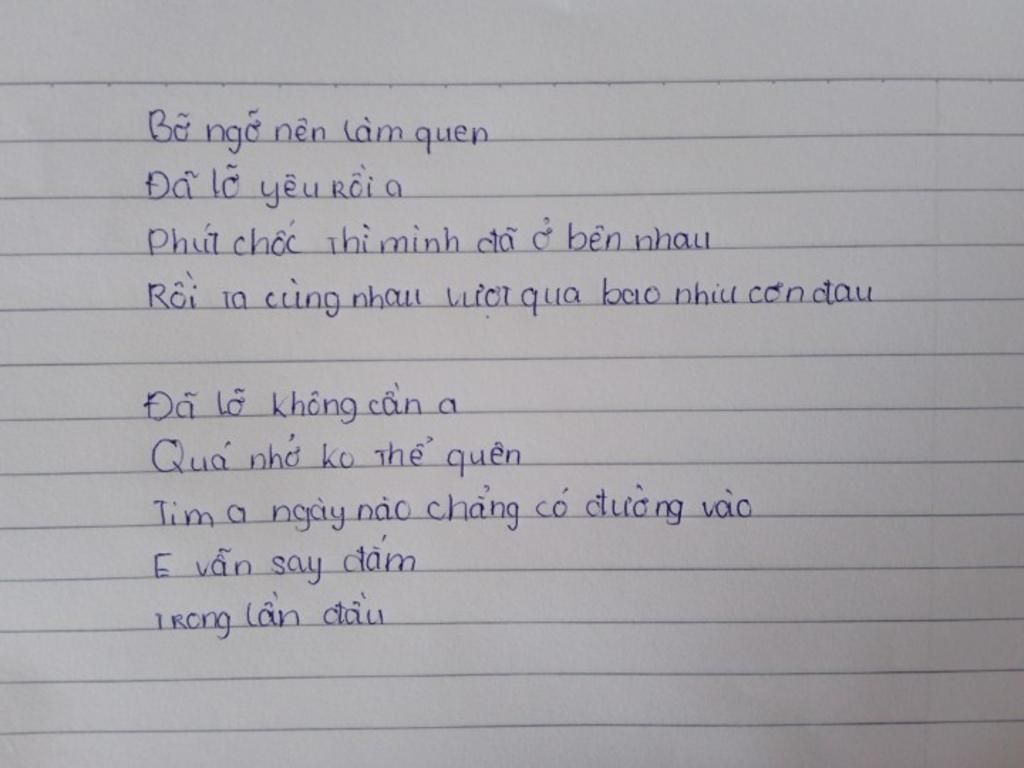 Bỡ ngỡ nên làm quen
Đã lỡ yêu rồi a
Phút chốc thì mình đã ở bên nhau
Rồi ta cùng nhau vượt qua bao nhiu cơn đau
Đã lỡ không cần a
Quá nhớ ko thể quên
Tim a ngày nào chẳng có đường vào
E vẫn say đắm
Trong lần đầu